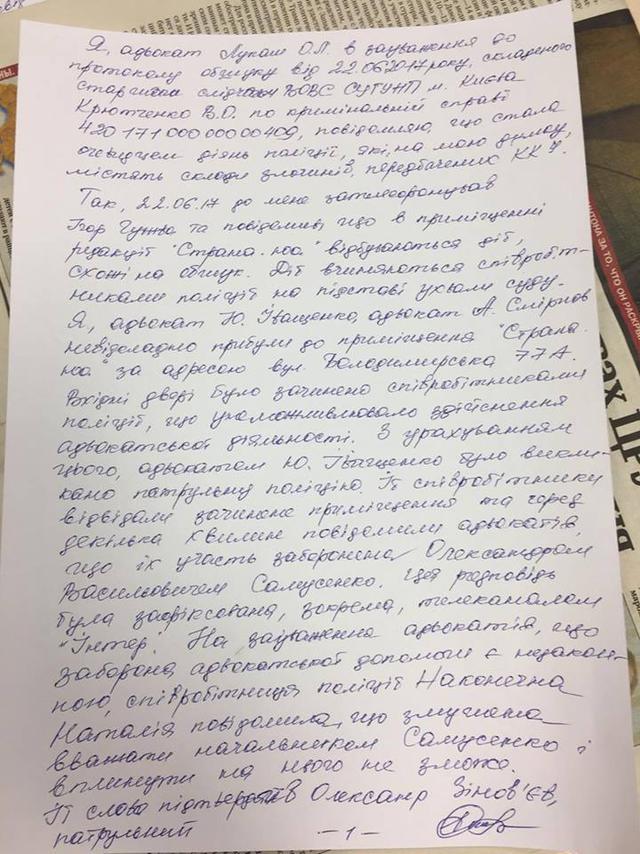 Я, адвокат Лукаш О.Л. в зауваження до
протоколу обшуку від 22.06.2017 року, складеного
старшим слідчим ВОВС СУГУНП м. Києва
Крютченко В.О. по кримінальній справі
42017100000000409, повідомляю, що стала
очевидцем діянь поліції, які, на мою думку,
містять склади злочинів, передбачених КК У.
Так, 22.06.17 до мене зателефонував
Ігор Гужва та повідомив, що в приміщенні
редакції "Страна.юа" відбуваються дії,
схожі на обшук. Дії вчиняються співробіт-
никами поліції на підставі ухвали суду.
Я, адвокат Ю. Іващенко, адвокат А. Смірнов
невідкладно прибули до приміщення "Страна.
юа" за адресою вул. Володимирська 77А.
Вхідні двері було зачинено співробітниками
поліції, що унеможливлювало здійснення
адвокатської діяльності. З урахуванням
цього, адвокатом Ю. Іващенко було викли-
кано патрульну поліцію. Її співробітники
відвідали зачинене приміщення та через
декілька хвилин повідомили адвокатів,
що їх участь заборонена Олександром
Васильовичем Самусенко. Ця розповідь
була зафіксована, зокрема, телеканалом
"Інтер". На зауваження адвокатів, що
заборона адвокатської допомоги є незакон-
ною, співробітниця поліції Наконечна
Наталія повідомила, що змушена
вважати начальником Самусенко і
вплинути на нього не зможе.
Її слова підтвердив Олександр Зінов'єв,
патрульний
- 1 -